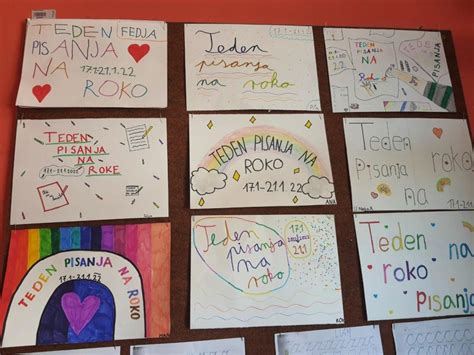 TEDEN FEDJA
PISANJA
NA 17.1-21.1.22
ROKO
Teden
pisanja
na
roko
TEDEN
PISANJA
NA
PISANJA
TEDEN
PISANJA
NA
ROKE
TEDEN PISANJA NA
ROKO
17.1-21.1.22
ANA
Teden
roko
Pisanja
na
TEDEN PISANJA NA ROKO
17.1-21.1.22
Teden
17.1
21.1
pisanja
na
roko
Teden
roko na
pisanja